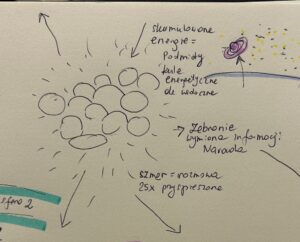 skumulowane
energie =
Podmioty
kule
energetyczne
ale widoczne
→ Zebranie
wymiana informacji
Narada
szmer = rozmowa
25x przyspieszona
sfera 2